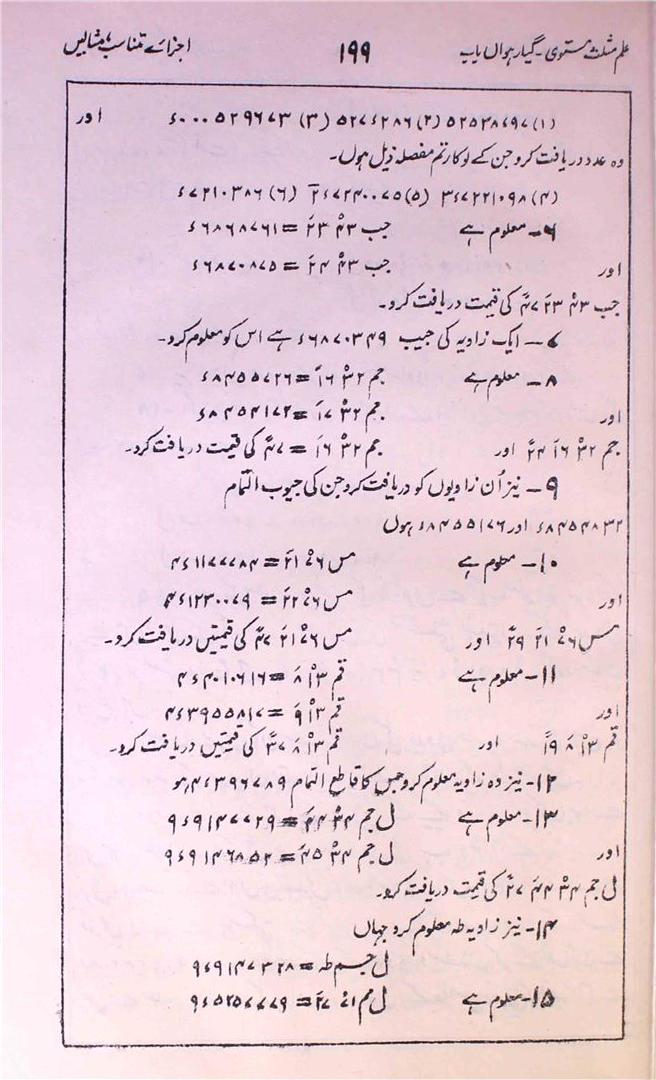 علم مثلث مستوی - گیارہواں باب ۱۹۹ اجزائے متناسب، مثالیں
(۱) ۵۲۵۳۸۶۹۷ (۲) ۵۲۷۶۲۸۶ (۳) ۶۰۰۰۵۲۹۶۷۳ اور
وہ عدد دریافت کرو جن کے لوکارتم مفصلہ ذیل ہوں۔
(۴) ۳۶۷۲۲۱۰۹۸ (۵) ۲۶۷۲۴۰۰۷۵ (۶) ۶۷۲۱۰۳۸۶
۶- معلوم ہے جب ۴۳° ۲۳َ = ۶۶۸۶۸۷۶۱
اور جب ۴۳° ۲۴َ = ۶۶۸۷۰۸۷۵
جب ۴۳° ۲۳َ ۴۷ً کی قیمت دریافت کرو۔
۷- ایک زاویہ کی جیب ۶۶۸۷۰۳۴۹ ہے اس کو معلوم کرو۔
۸- معلوم ہے جم ۳۲° ۱۶َ = ۶۸۴۵۵۷۲۶
اور جم ۳۲° ۱۷َ = ۶۸۴۵۴۱۷۲
جم ۳۲° ۱۶َ ۲۴ً اور جم ۳۲° ۱۶َ = ۴۷ً کی قیمت دریافت کرو۔
۹- نیز اُن زاویوں کو دریافت کرو جن کی جیوب التمام
۶۸۴۵۴۸۳۲ اور ۶۸۴۵۵۱۷۶ ہوں
۱۰- معلوم ہے مس ۷۶° ۲۱َ = ۴۶۱۱۷۷۷۸۴
اور مس ۷۶° ۲۲َ = ۴۶۱۲۳۰۰۷۹
مس ۷۶° ۲۱َ ۲۹ً اور مس ۷۶° ۲۱َ ۴۷ً کی قیمتیں دریافت کرو۔
۱۱- معلوم ہے قم ۱۳° ۸َ = ۴۶۴۰۱۰۶۱۶
اور قم ۱۳° ۹َ = ۴۶۳۹۵۵۸۱۷
قم ۱۳° ۸َ ۱۹ً اور قم ۱۳° ۸َ ۳۷ً کی قیمتیں دریافت کرو۔
۱۲- نیز وہ زاویہ معلوم کرو جس کا قاطع التمام ۴۶۳۹۶۷۸۹ ہو
۱۳- معلوم ہے ل جم ۳۴° ۴۴َ = ۹۶۹۱۴۷۷۲۹
اور ل جم ۳۴° ۴۵َ = ۹۶۹۱۴۶۸۵۲
ل جم ۳۴° ۴۴َ ۲۷ً کی قیمت دریافت کرو۔
۱۴- نیز زاویہ طہ معلوم کرو جہاں
ل جم طہ = ۹۶۹۱۴۷۳۲۸
۱۵- معلوم ہے ل مم ۷۱° ۲۷َ = ۹۶۵۲۵۷۷۷۹